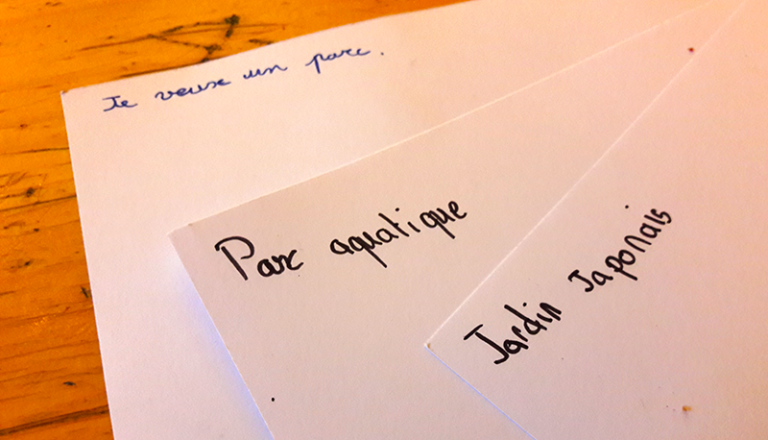 Je veux un parc.
Parc aquatique
Jardin Japonais